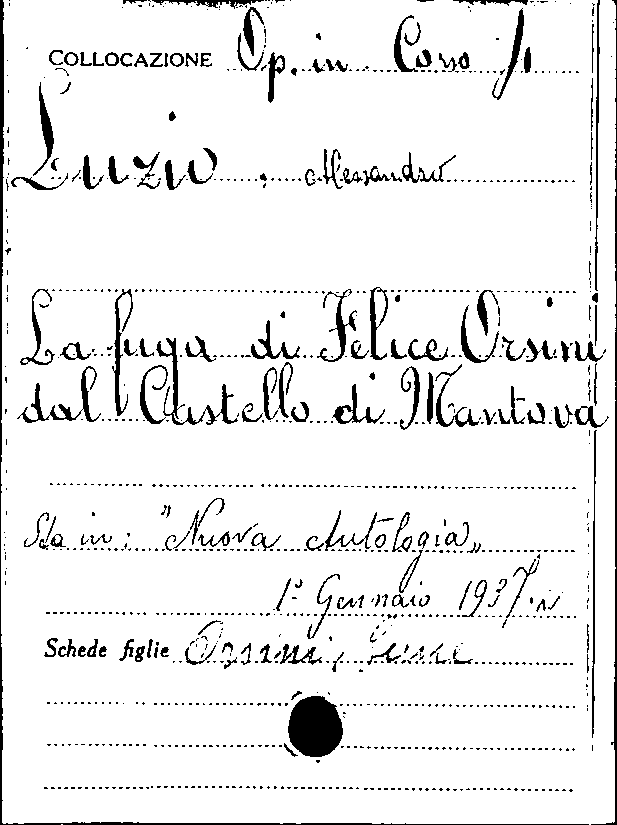 COLLOCAZIONE Op. in Corso
Luzio, Alessandro
La fuga di Felice Orsini
dal Castello di Mantova
Sta in: "Nuova Antologia„
1° Gennaio 1937.
Schede figlie Orsini,